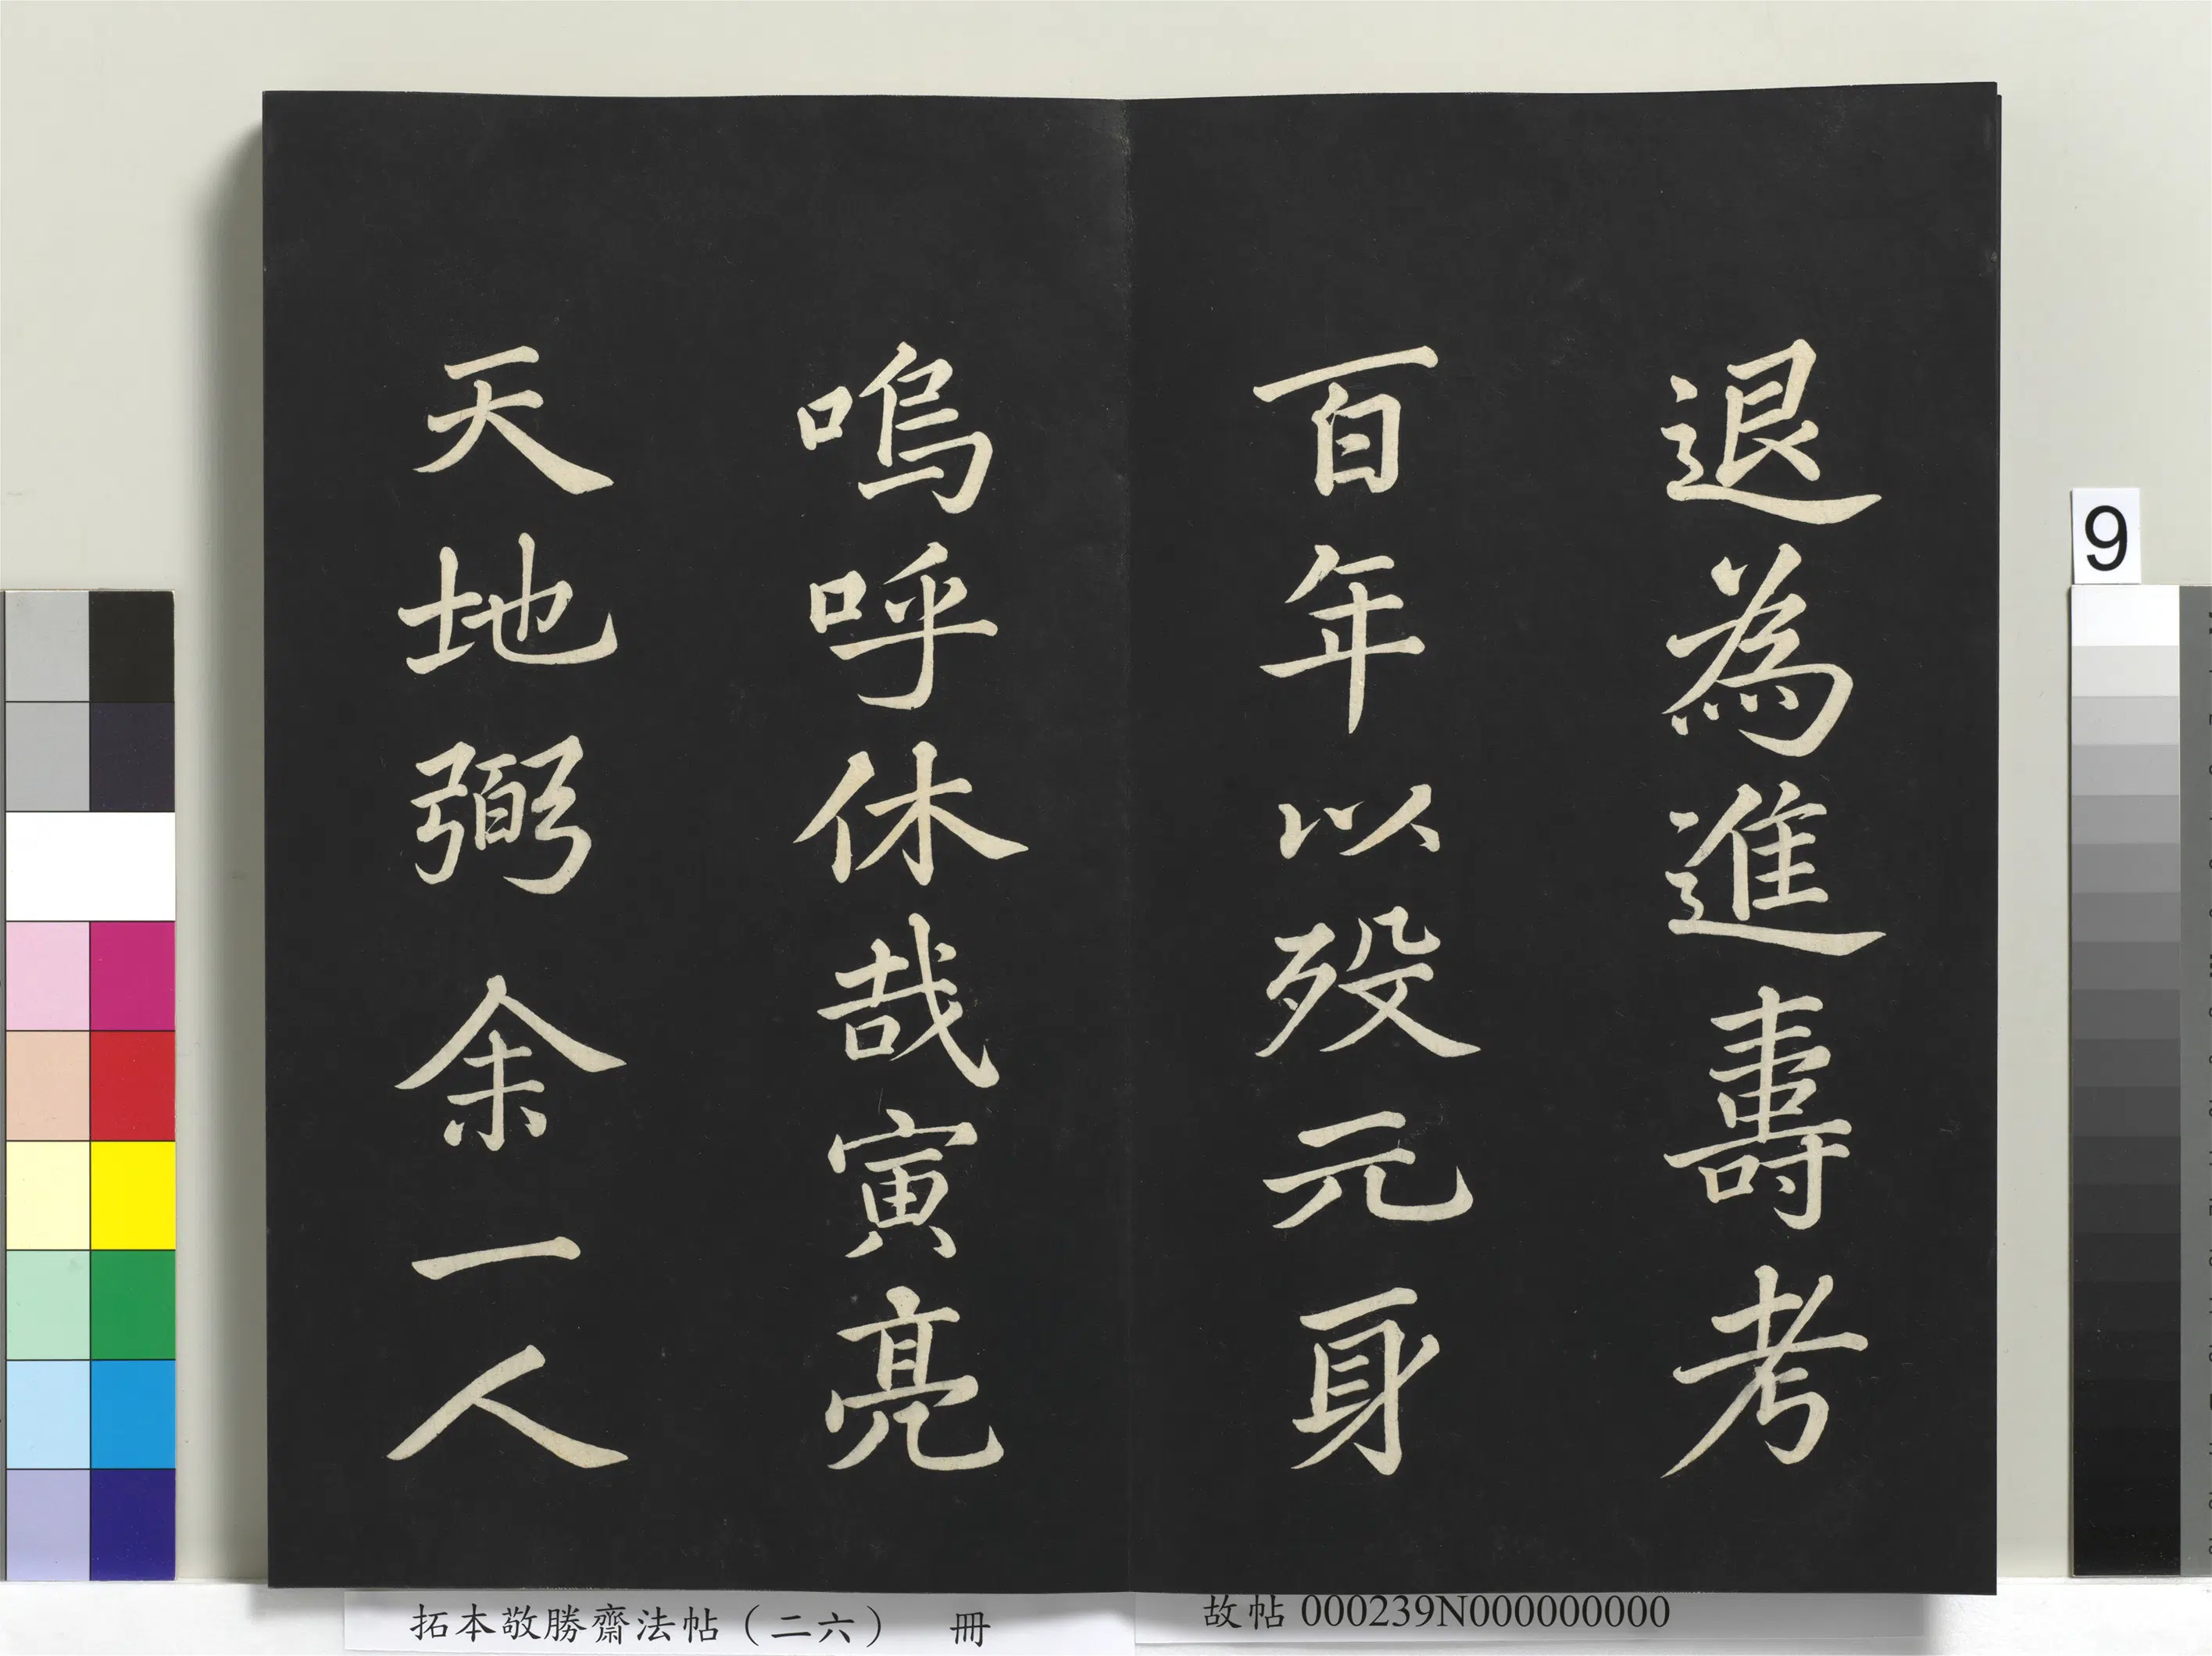 退為進壽考
百年以歿元身
嗚呼休哉寅亮
天地弼余一人
9
拓本敬勝齋法帖（二六） 冊
故帖 000239N000000000